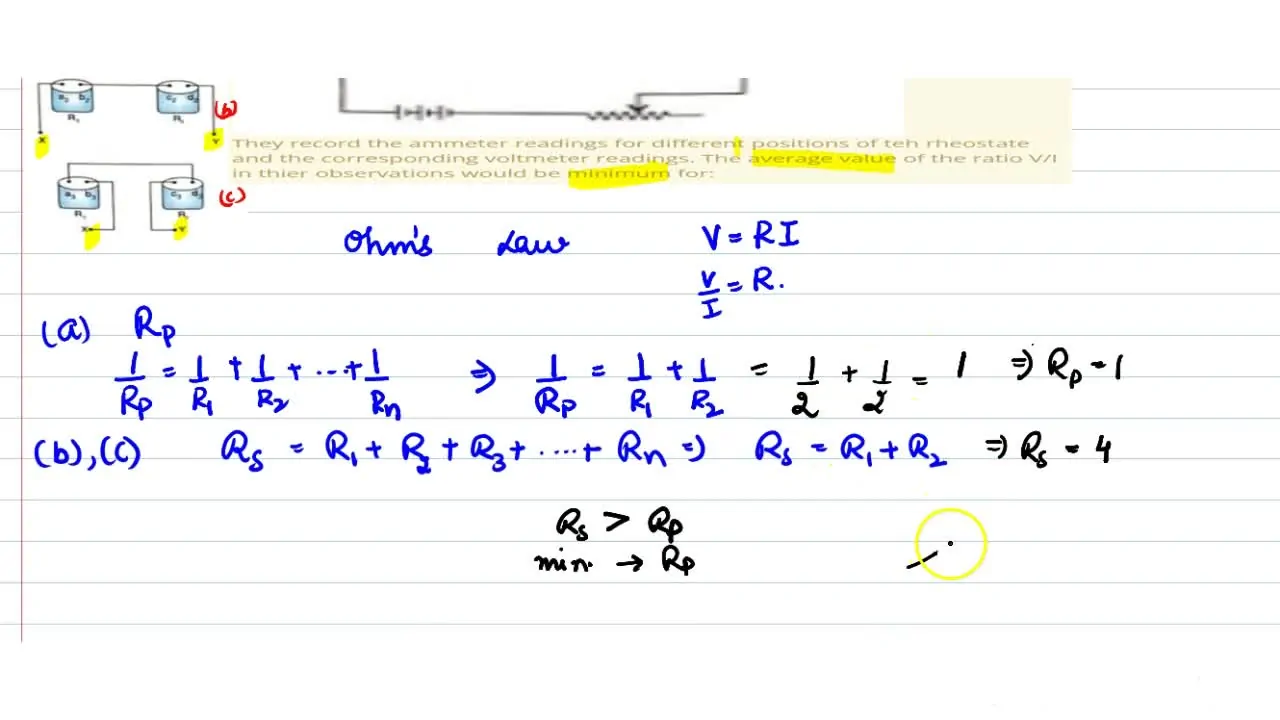 a₂ b₂ c₂ d₂
R₁ R₂
(b)
X Y
They record the ammeter readings for different positions of teh rheostate
and the corresponding voltmeter readings. The average value of the ratio V/I
in thier observations would be minimum for:
a₃ b₃ c₃ d₃
(c)
R₁
X Y
Ohm's Law V = RI
V/I = R.
(a) Rp
1/Rp = 1/R₁ + 1/R₂ + ... + 1/Rn ⇒ 1/Rp = 1/R₁ + 1/R₂ = 1/2 + 1/2 = 1 ⇒ Rp = 1
(b),(C) Rs = R₁ + R₂ + R₃ + .... + Rn ⇒ Rs = R₁ + R₂ ⇒ Rs = 4
Rs > Rp
min. → Rp